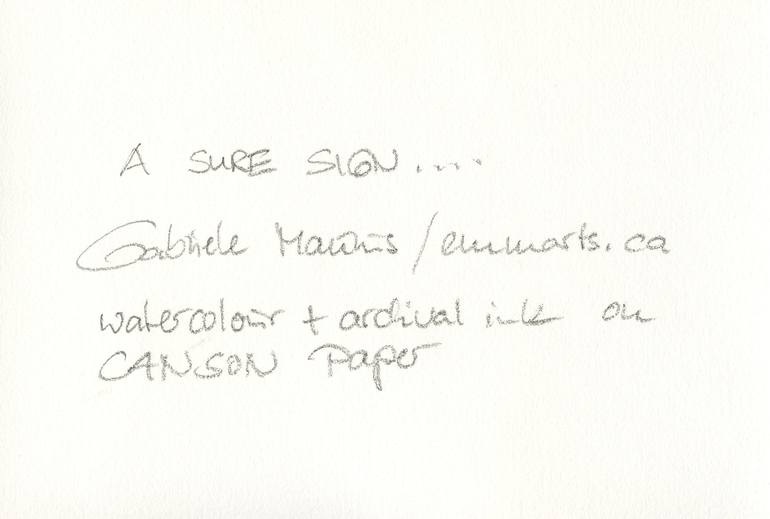 A SURE SIGN....
Gabriele Maurus / emmarts.ca
watercolour + archival ink on
CANSON Paper